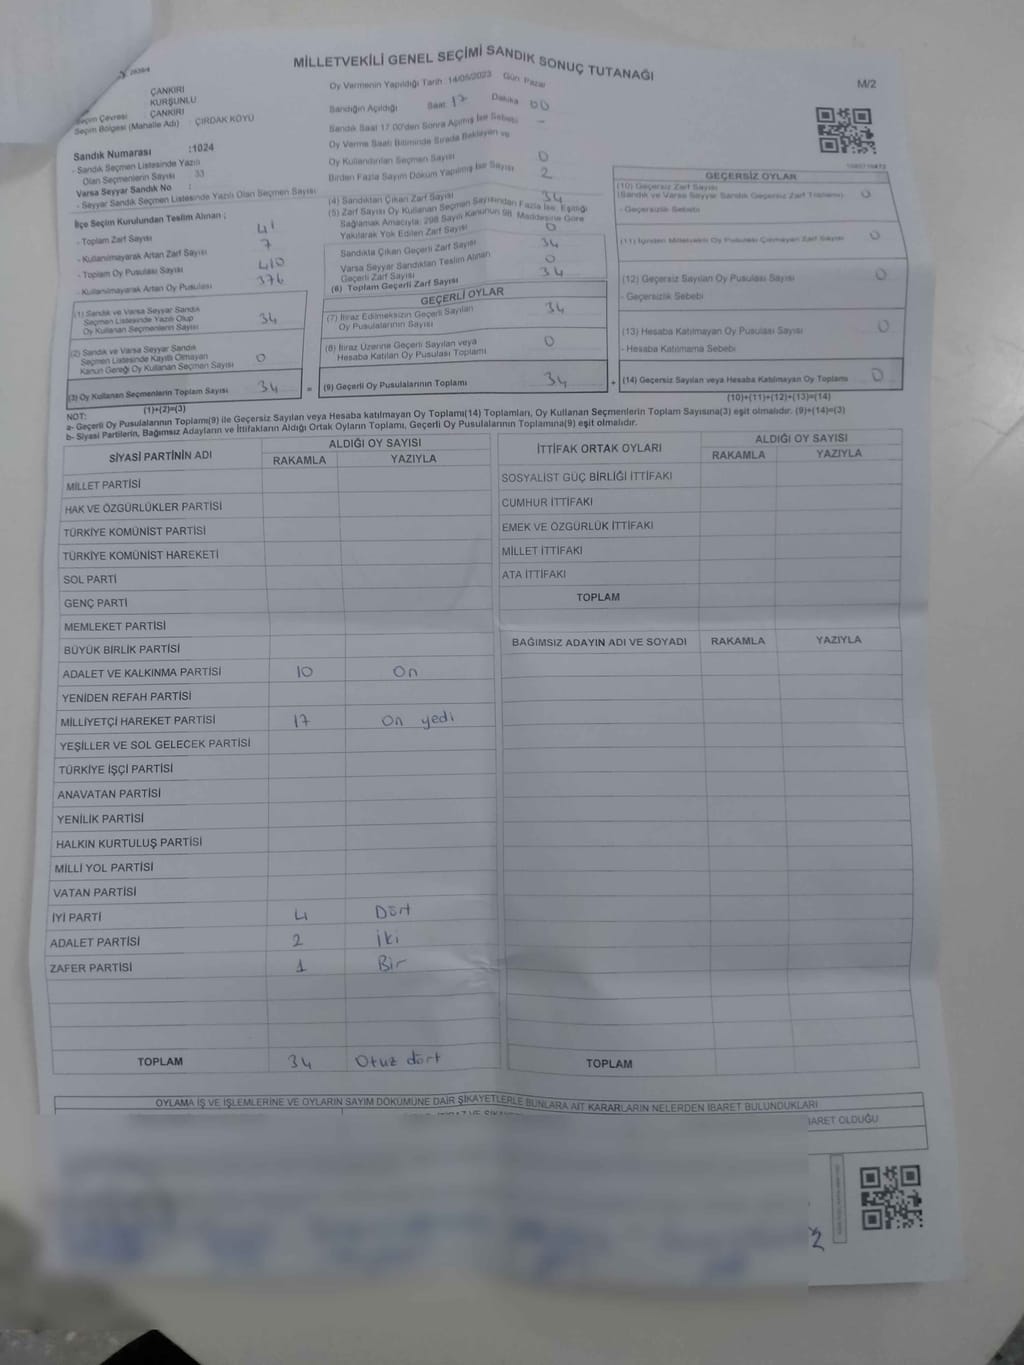 MİLLETVEKİLİ GENEL SEÇİMİ SANDIK SONUÇ TUTANAĞI
M/2
ÇANKIRI
KURŞUNLU
Seçim Çevresi : ÇANKIRI
Seçim Bölgesi (Mahalle Adı) : ÇIRDAK KÖYÜ
Sandık Numarası :1024
- Sandık Seçmen Listesinde Yazılı
Olan Seçmenlerin Sayısı 33
Varsa Seyyar Sandık No :
- Seyyar Sandık Seçmen Listesinde Yazılı Olan Seçmen Sayısı
İlçe Seçim Kurulundan Teslim Alınan ;
- Toplam Zarf Sayısı 41
- Kullanılmayarak Artan Zarf Sayısı 7
- Toplam Oy Pusulası Sayısı 410
- Kullanılmayarak Artan Oy Pusulası 376
(1) Sandık ve Varsa Seyyar Sandık
Seçmen Listesinde Yazılı Olup
Oy Kullanan Seçmenlerin Sayısı 34
(2) Sandık ve Varsa Seyyar Sandık
Seçmen Listesinde Kayıtlı Olmayan
Kanun Gereği Oy Kullanan Seçmen Sayısı 0
(3) Oy Kullanan Seçmenlerin Toplam Sayısı 34
(1)+(2)=(3)
Oy Vermenin Yapıldığı Tarih :14/05/2023 Gün Pazar
Sandığın Açıldığı Saat 17 Dakika 00
Sandık Saat 17.00'den Sonra Açılmış İse Sebebi -
Oy Verme Saati Bitiminde Sırada Bekleyen ve
Oy Kullandırılan Seçmen Sayısı 0
Birden Fazla Sayım Döküm Yapılmış İse Sayısı 2
(4) Sandıktan Çıkan Zarf Sayısı 34
(5) Zarf Sayısı Oy Kullanan Seçmen Sayısından Fazla İse, Eşitliği
Sağlamak Amacıyla; 298 Sayılı Kanunun 98. Maddesine Göre
Yakılarak Yok Edilen Zarf Sayısı 0
Sandıkta Çıkan Geçerli Zarf Sayısı 34
Varsa Seyyar Sandıktan Teslim Alınan
Geçerli Zarf Sayısı 0
(6) Toplam Geçerli Zarf Sayısı 34
GEÇERLİ OYLAR
(7) İtiraz Edilmeksizin Geçerli Sayılan
Oy Pusulalarının Sayısı 34
(8) İtiraz Üzerine Geçerli Sayılan veya
Hesaba Katılan Oy Pusulası Toplamı 0
= (9) Geçerli Oy Pusulalarının Toplamı 34
GEÇERSİZ OYLAR
(10) Geçersiz Zarf Sayısı
(Sandık ve Varsa Seyyar Sandık Geçersiz Zarf Toplamı) 0
- Geçersizlik Sebebi
(11) İçinden Milletvekili Oy Pusulası Çıkmayan Zarf Sayısı 0
(12) Geçersiz Sayılan Oy Pusulası Sayısı 0
- Geçersizlik Sebebi
(13) Hesaba Katılmayan Oy Pusulası Sayısı 0
- Hesaba Katılmama Sebebi
+ (14) Geçersiz Sayılan veya Hesaba Katılmayan Oy Toplamı 0
(10)+(11)+(12)+(13)=(14)
NOT:
a- Geçerli Oy Pusulalarının Toplamı(9) ile Geçersiz Sayılan veya Hesaba katılmayan Oy Toplamı(14) Toplamları, Oy Kullanan Seçmenlerin Toplam Sayısına(3) eşit olmalıdır. (9)+(14)=(3)
b- Siyasi Partilerin, Bağımsız Adayların ve İttifakların Aldığı Ortak Oyların Toplamı, Geçerli Oy Pusulalarının Toplamına(9) eşit olmalıdır.
SİYASİ PARTİNİN ADI ALDIĞI OY SAYISI
RAKAMLA YAZIYLA
MİLLET PARTİSİ
HAK VE ÖZGÜRLÜKLER PARTİSİ
TÜRKİYE KOMÜNİST PARTİSİ
TÜRKİYE KOMÜNİST HAREKETİ
SOL PARTİ
GENÇ PARTİ
MEMLEKET PARTİSİ
BÜYÜK BİRLİK PARTİSİ
ADALET VE KALKINMA PARTİSİ 10 On
YENİDEN REFAH PARTİSİ
MİLLİYETÇİ HAREKET PARTİSİ 17 On yedi
YEŞİLLER VE SOL GELECEK PARTİSİ
TÜRKİYE İŞÇİ PARTİSİ
ANAVATAN PARTİSİ
YENİLİK PARTİSİ
HALKIN KURTULUŞ PARTİSİ
MİLLİ YOL PARTİSİ
VATAN PARTİSİ
İYİ PARTİ 4 Dört
ADALET PARTİSİ 2 İki
ZAFER PARTİSİ 1 Bir
TOPLAM 34 Otuz dört
İTTİFAK ORTAK OYLARI ALDIĞI OY SAYISI
RAKAMLA YAZIYLA
SOSYALİST GÜÇ BİRLİĞİ İTTİFAKI
CUMHUR İTTİFAKI
EMEK VE ÖZGÜRLÜK İTTİFAKI
MİLLET İTTİFAKI
ATA İTTİFAKI
TOPLAM
BAĞIMSIZ ADAYIN ADI VE SOYADI RAKAMLA YAZIYLA
TOPLAM
OYLAMA İŞ VE İŞLEMLERİNE VE OYLARIN SAYIM DÖKÜMÜNE DAİR ŞİKAYETLERLE BUNLARA AİT KARARLARIN NELERDEN İBARET BULUNDUKLARI
İBARET OLDUĞU